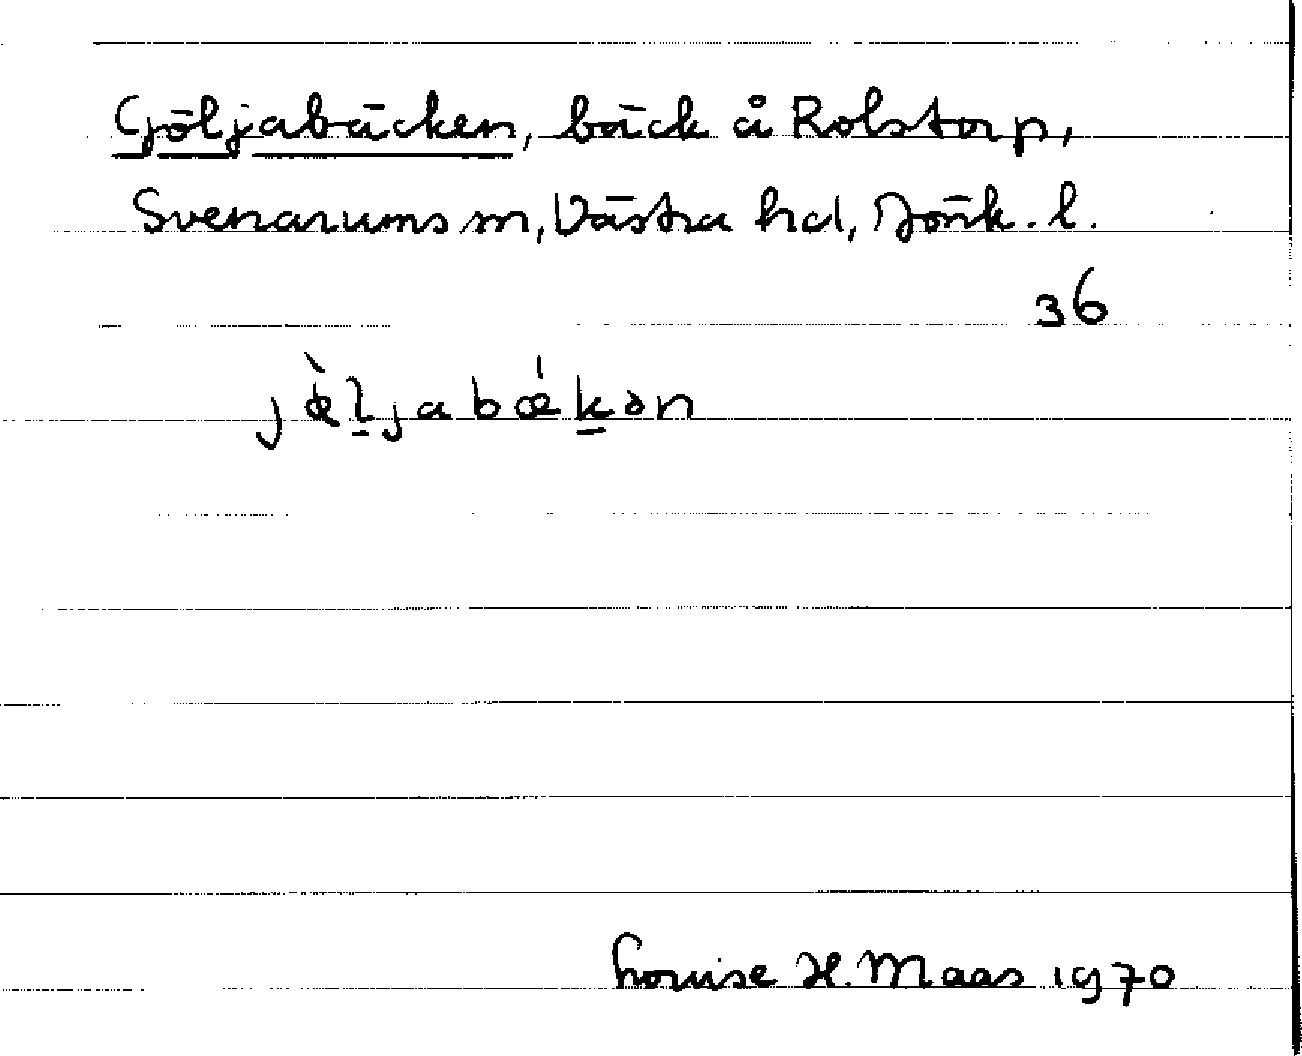 Göljabäcken, bäck å Rolstorp,
Svenarums sn, Västra hd, Jönk. l.
36
jœ̀ljabǽkən
Louise H. Maas 1970